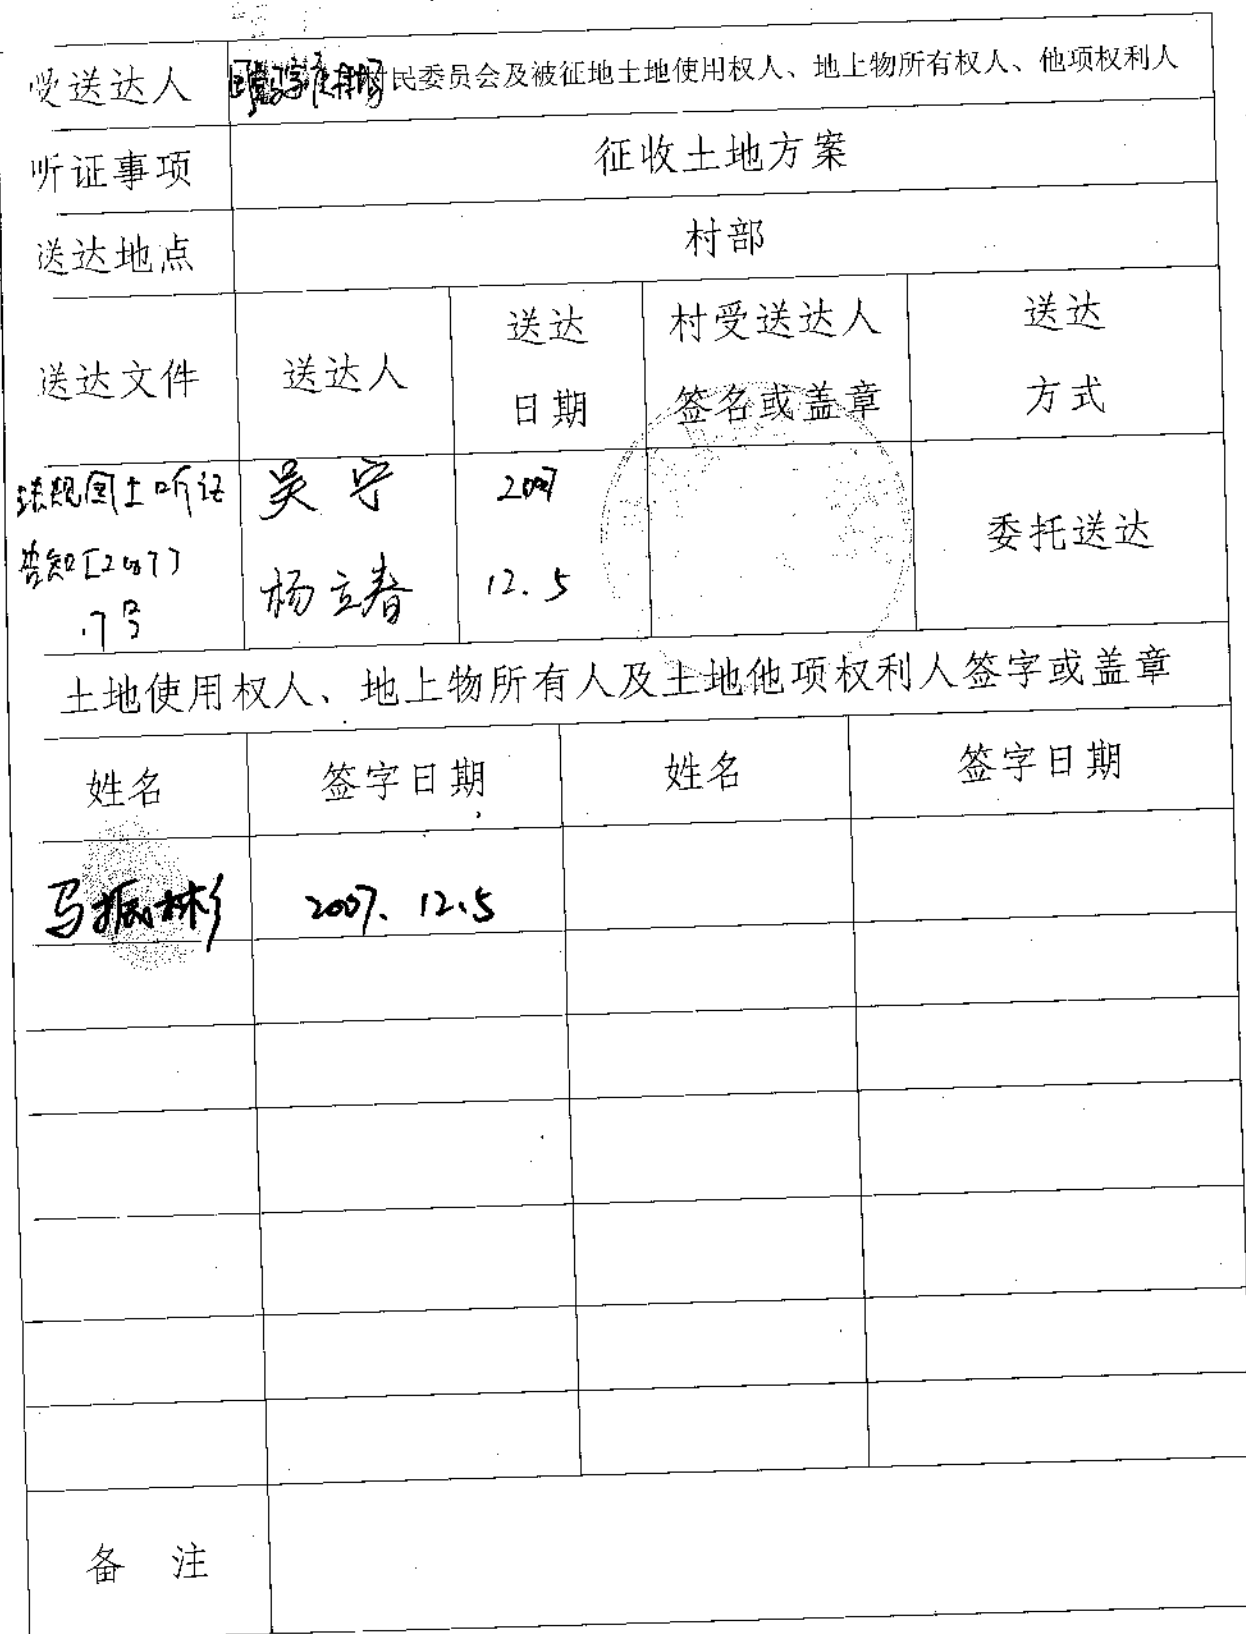 受送达人 村民委员会及被征地土地使用权人、地上物所有权人、他项权利人
听证事项 征收土地方案
送达地点 村部
送达文件 送达人 送达日期 村受送达人签名或盖章 送达方式
规国土听证告知[2007]7号 吴宁 杨立春 2007 12.5 委托送达
土地使用权人、地上物所有人及土地他项权利人签字或盖章
姓名 签字日期 姓名 签字日期
马振彬 2007.12.5
备 注